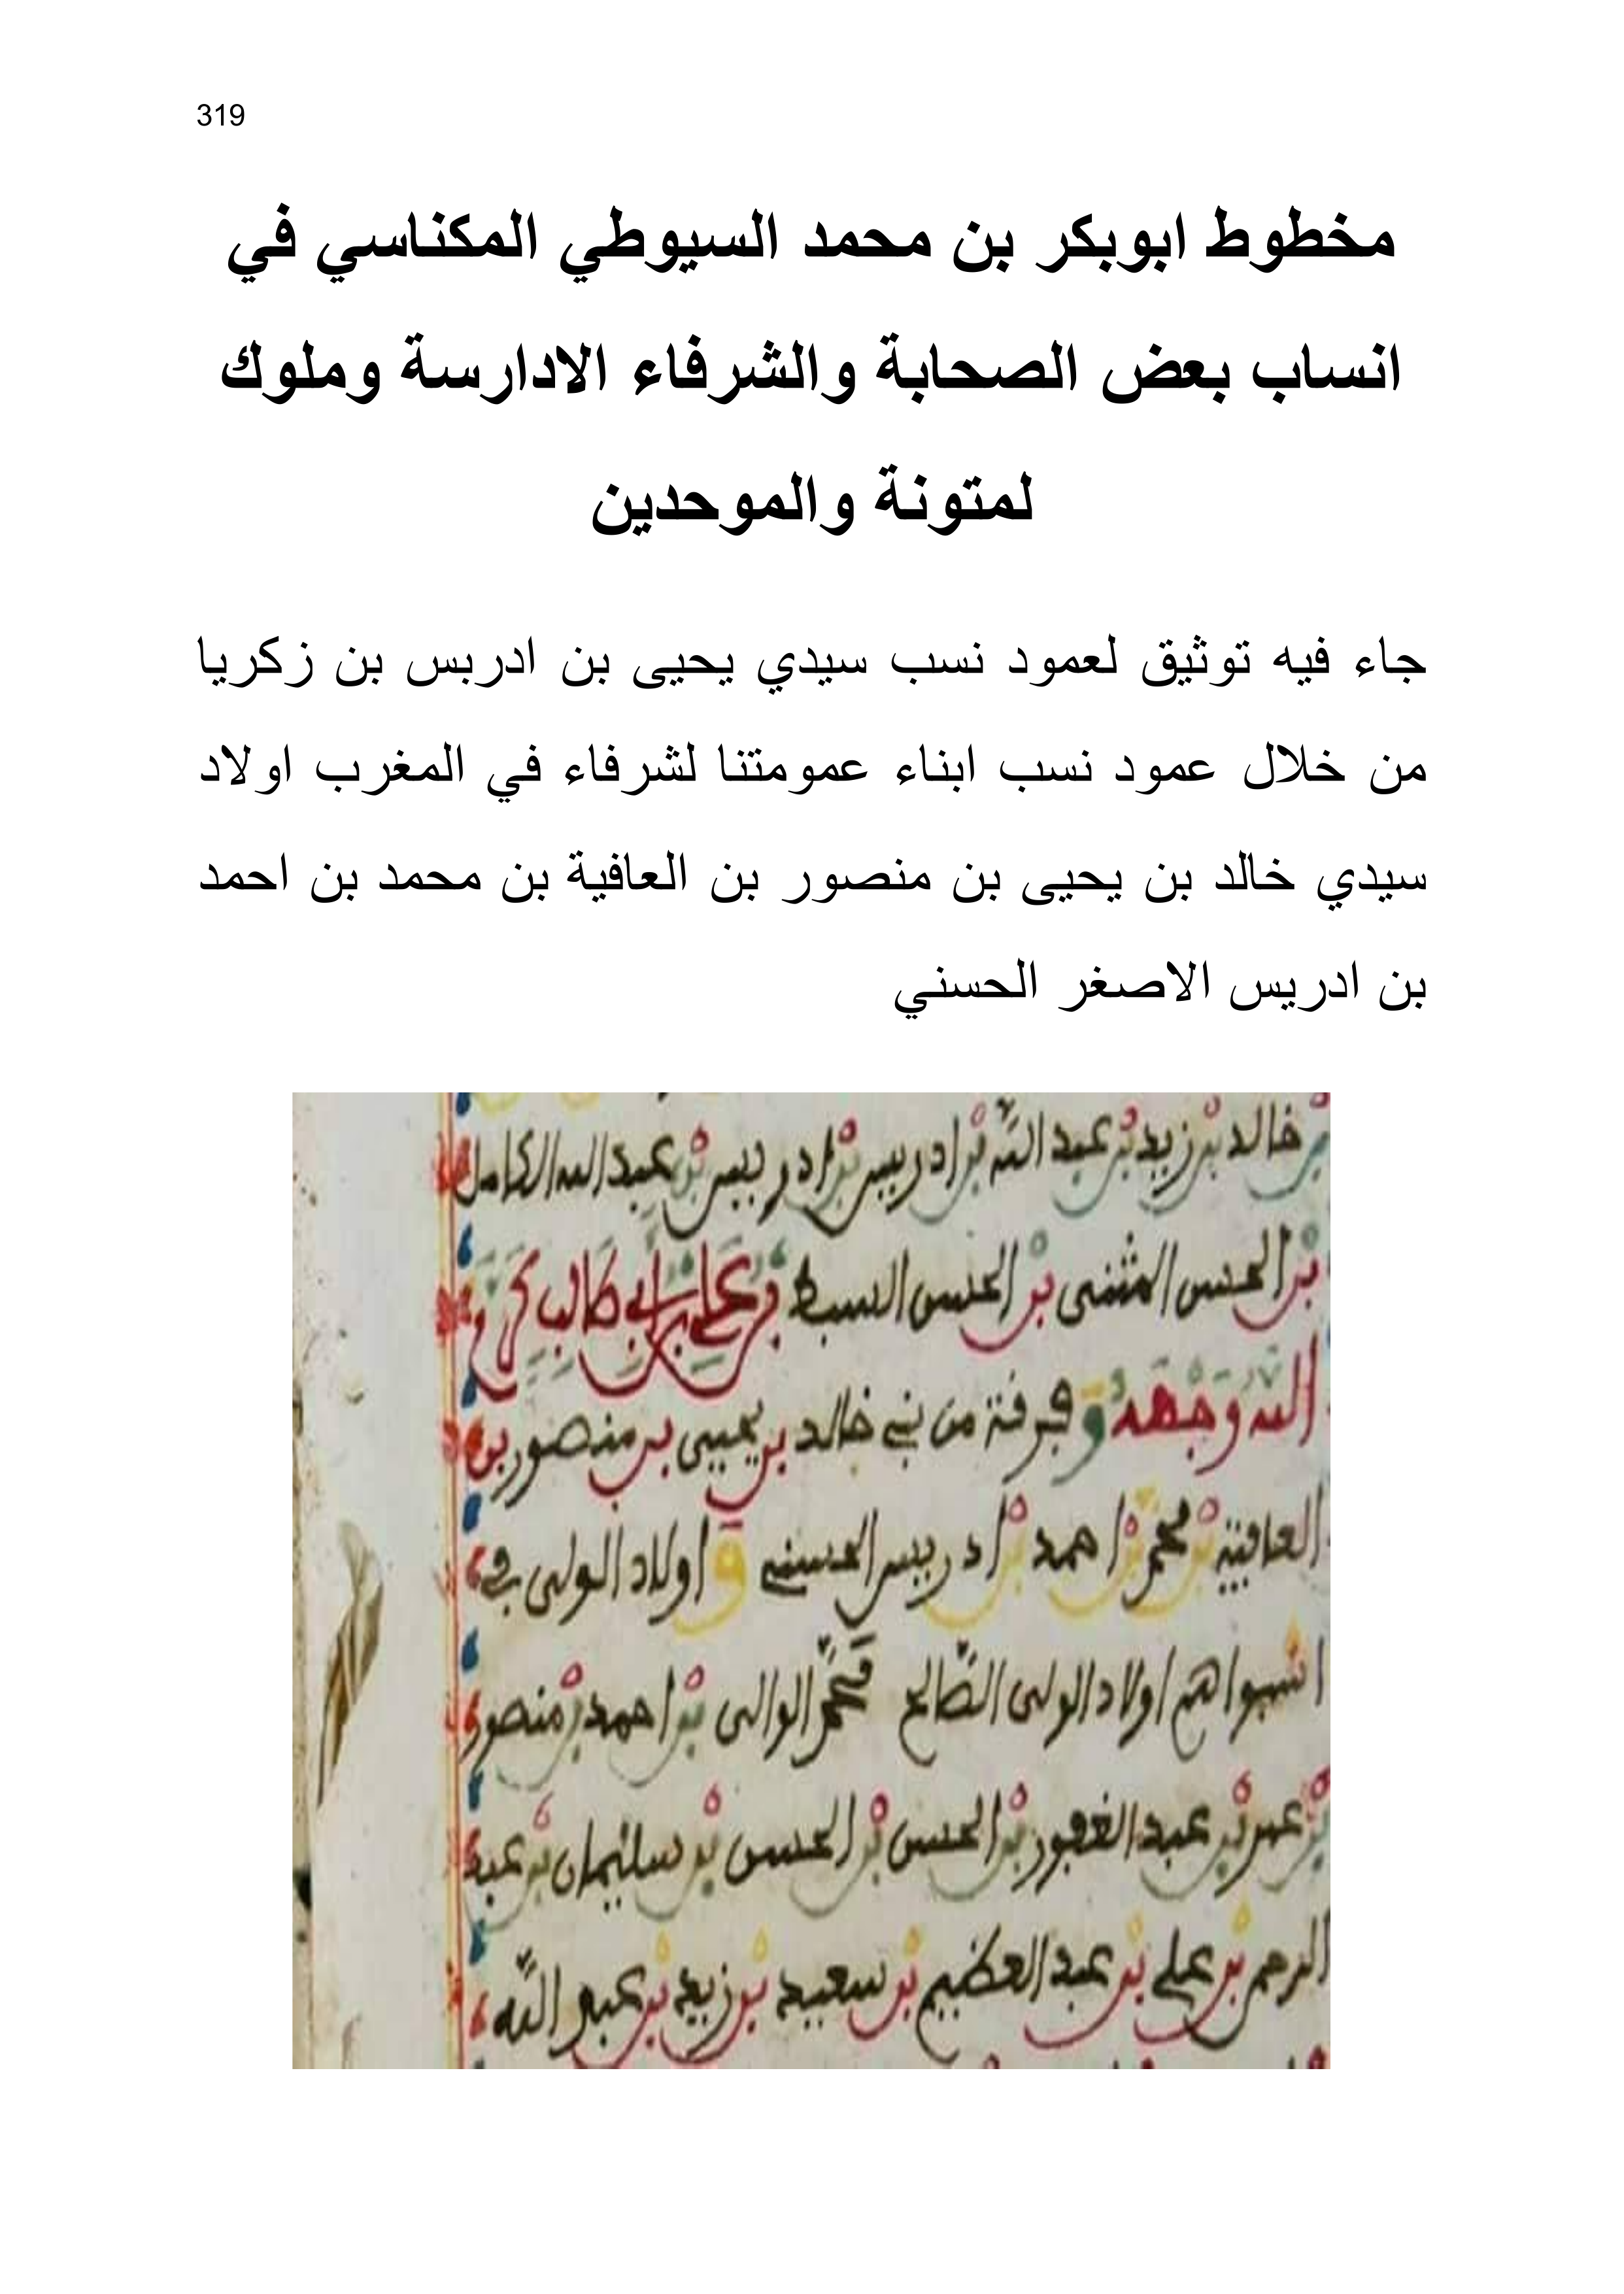 319
مخطوط ابوبكر بن محمد السيوطي المكناسي في
انساب بعض الصحابة والشرفاء الادارسة وملوك
لمتونة والموحدين
جاء فيه توثيق لعمود نسب سيدي يحيى بن ادربس بن زكريا
من خلال عمود نسب ابناء عمومتنا لشرفاء في المغرب اولاد
سيدي خالد بن يحيى بن منصور بن العافية بن محمد بن احمد
بن ادريس الاصغر الحسني
بن خالد بن زيد بن عبد الله بن ادريس بن ادريس بن عبد الله الكامل
بن الحسن المثنى بن الحسن السبط بن علي بن أبي طالب كرم
الله وجهه وفرقة من بني خالد بن يحيى بن منصور بن
العافية بن محمد بن احمد بن ادريس الحسني و اولاد الولي في
اولاد الولي الصالح محمد الوالي بن احمد بن منصور
بن عمر بن عبد الغفور بن الحسن بن الحسن بن سليمان بن عبد
الرحمن بن علي بن عبد العظيم بن سعيد بن زيد بن عبد الله